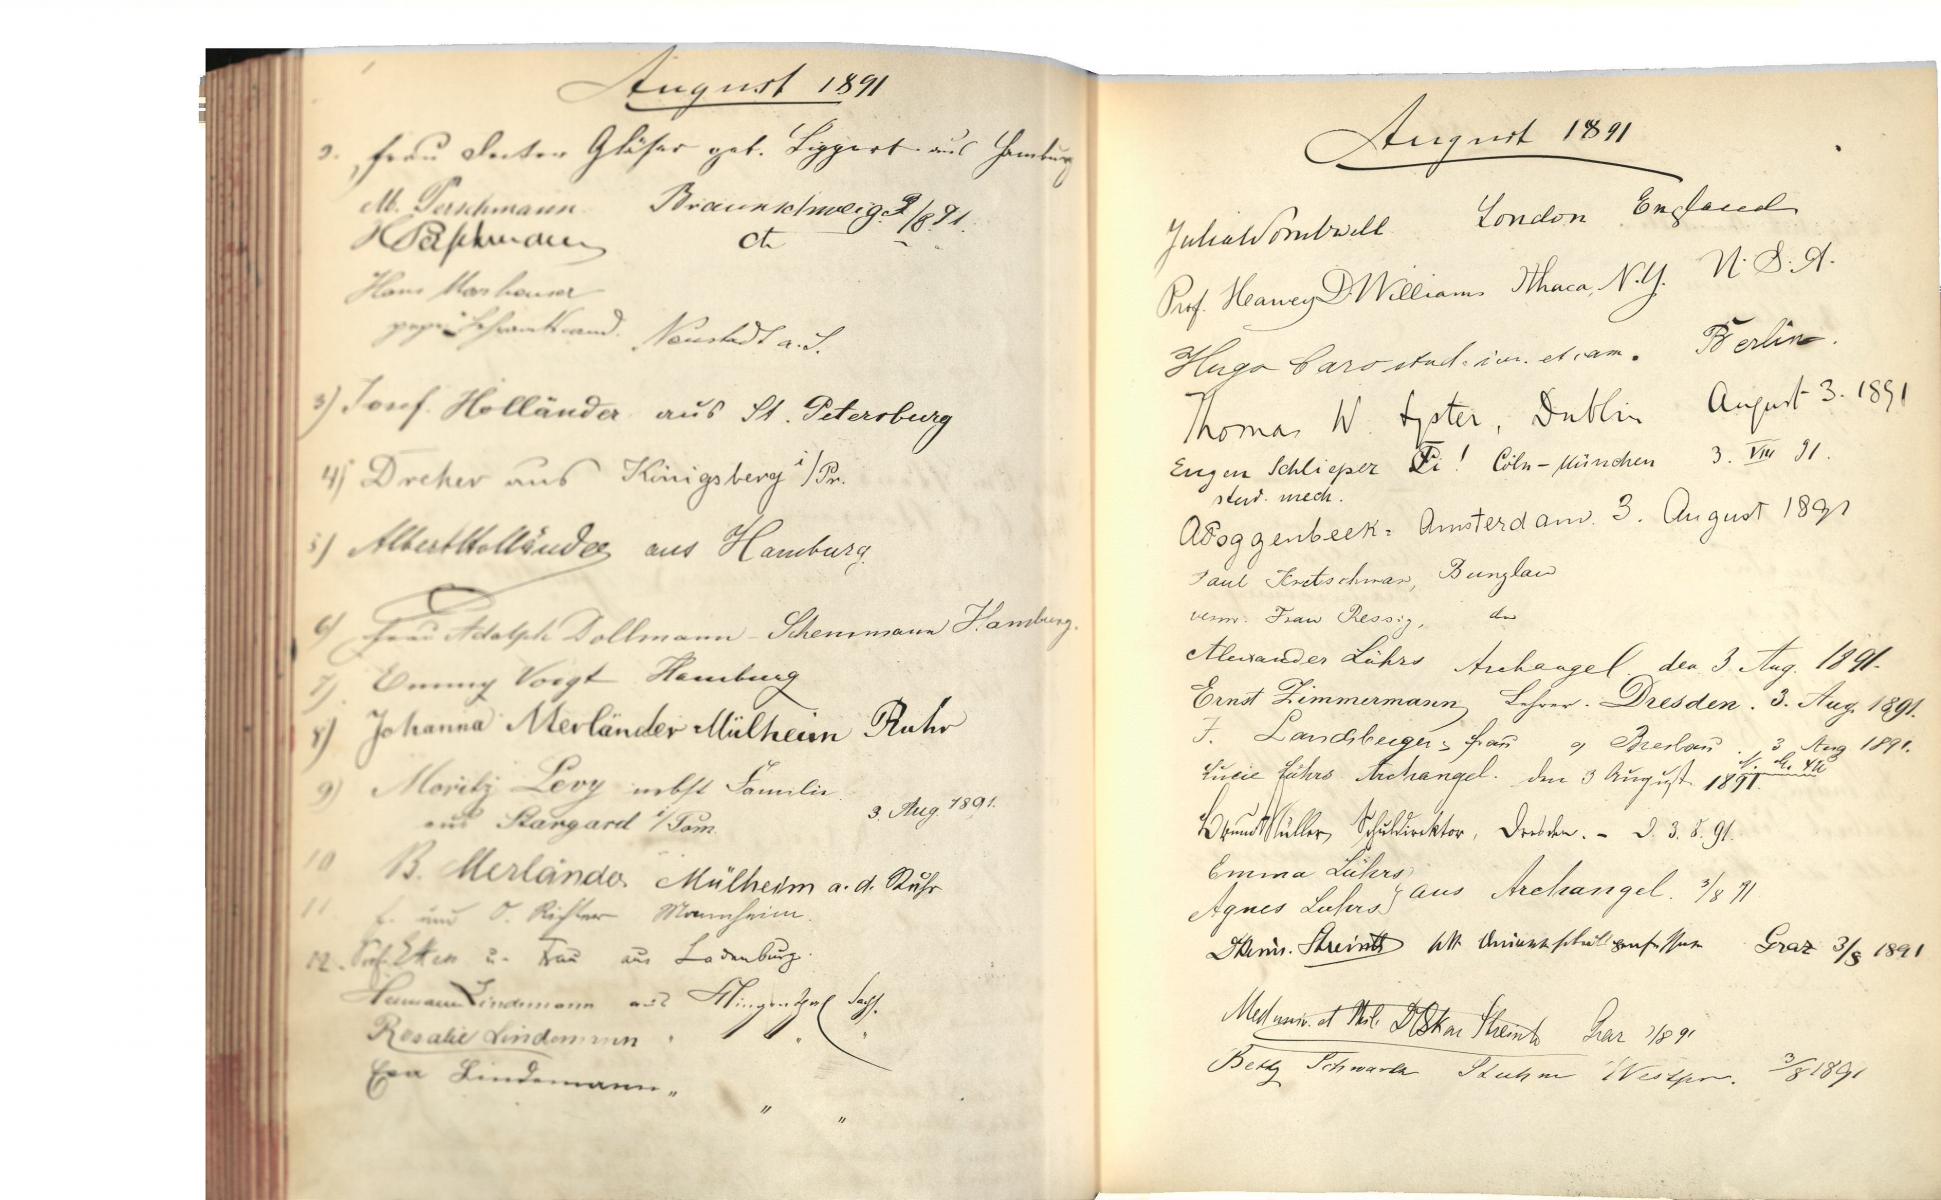 August 1891
2. Frau Doctor Gläser geb. Lippert aus Hamburg
M. Perschmann Braunschweig. 2/8 91.
Hans
Neustadt a. S.
3) Josef Holländer aus St. Petersburg
4) Dreher aus Königsberg i/Pr.
5) Albert Holländer aus Hamburg.
6) Frau Adolph Dollmann-Schemmann Hamburg.
7) Emmy Voigt Hamburg
8) Johanna Merländer Mülheim Ruhr
9) Moritz Levy nebst Familie
aus Stargard i/Pom. 3. Aug. 1891.
10 B. Merländer Mülheim a. d. Ruhr
11 und O. Richter Mannheim.
12. Prof. u. Frau aus Ladenburg.
Hermann Lindemann aus Klingenthal Sachs.
Rosalie Lindemann " " "
Eva Lindemann " " "
August 1891
Julia Wombwell London England
Prof. Williams Ithaca, N.Y. U.S.A.
Hugo Caro stud. iur. et cam. Berlin.
Thomas W. Lyster, Dublin August 3. 1891
Eugen Schlieper Cöln-München 3. VIII 91.
stud. mech.
A Poggenbeek = Amsterdam. 3. August 1891
Paul Kretschmar, Bunzlau
verw. Frau Ressig, do
Alexander Lührs Archangel den 3 Aug. 1891.
Ernst Zimmermann, Lehrer. Dresden. 3. Aug. 1891.
J. Landsberger & Frau Breslau. 3 Aug 1891.
Lucie Lührs Archangel. den 3 August 1891.
Bruno Müller, Schuldirektor, Dresden. - d. 3. 8. 91.
Emma Lührs
Agnes Lührs } aus Archangel. 3/8 91
Streintz kk Universitätsprofessor Graz 3/8 1891
Med univ. et Phil. Dr Oskar Streintz Graz 3/8 91
Betty Schwarz Stuhm Westpr. 3/8 1891